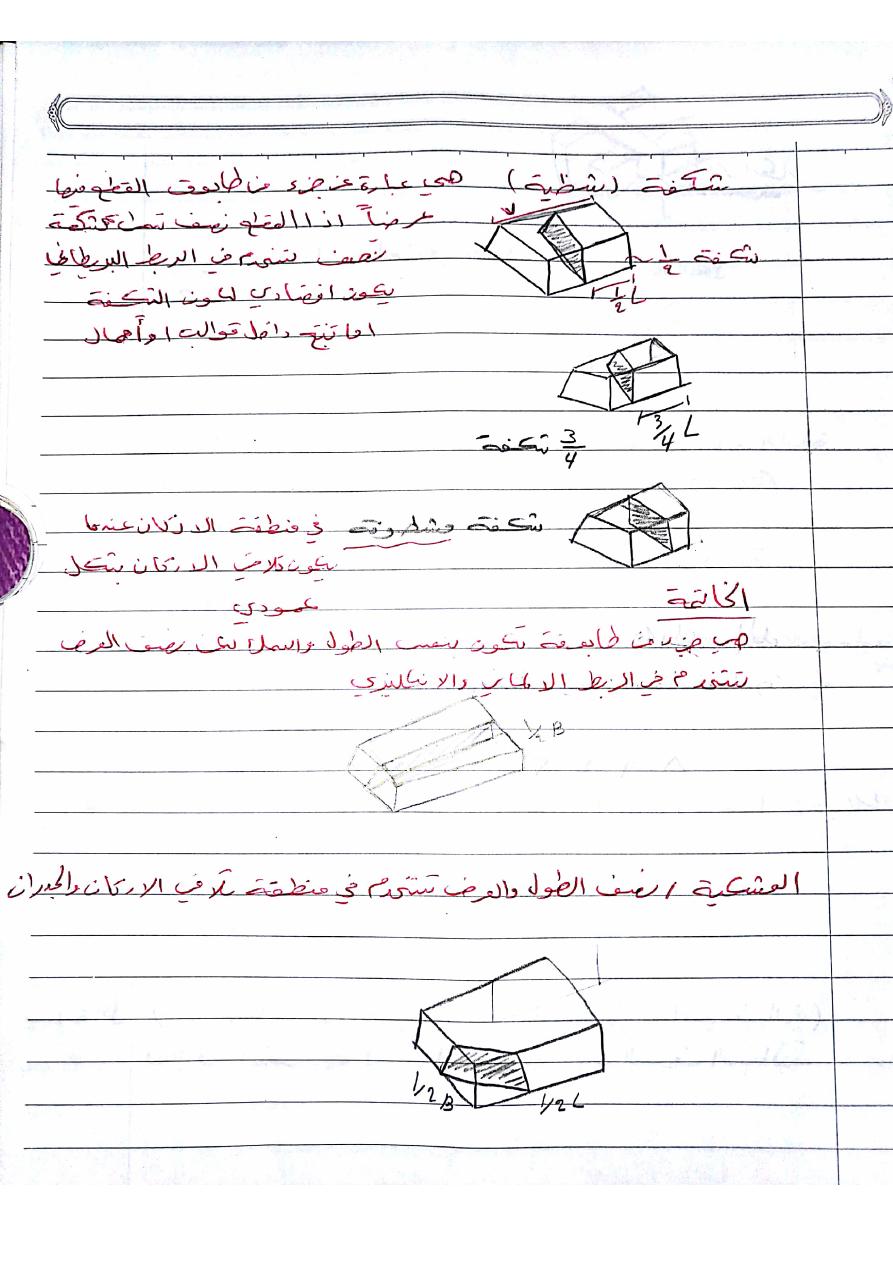 شكفة (شظية) هي عبارة عن جزء من طابوق القطع فيها
عرضاً اذا القطع نصف تسمى شكفة
نصف تستخدم في الربط البريطاني
شكفة 1/2
1/2 L
يكون اقتصادي لكون الشكفة
اما تنتج داخل قوالب او أعمال
3/4 L
3/4 شكفة
شكفة مشطوفة في منطقة الاركان عندما
يكون تلاقي الاركان بشكل
عمودي
الخاتمة
هي جزء من طابوقة تكون بنفس الطول والسمك لكن نصف العرض
تستخدم في الربط الالماني والانكليزي
1/2 B
العشكية / نصف الطول والعرض تستخدم في منطقة تلاقي الاركان والجدران
1/2 B
1/2 L